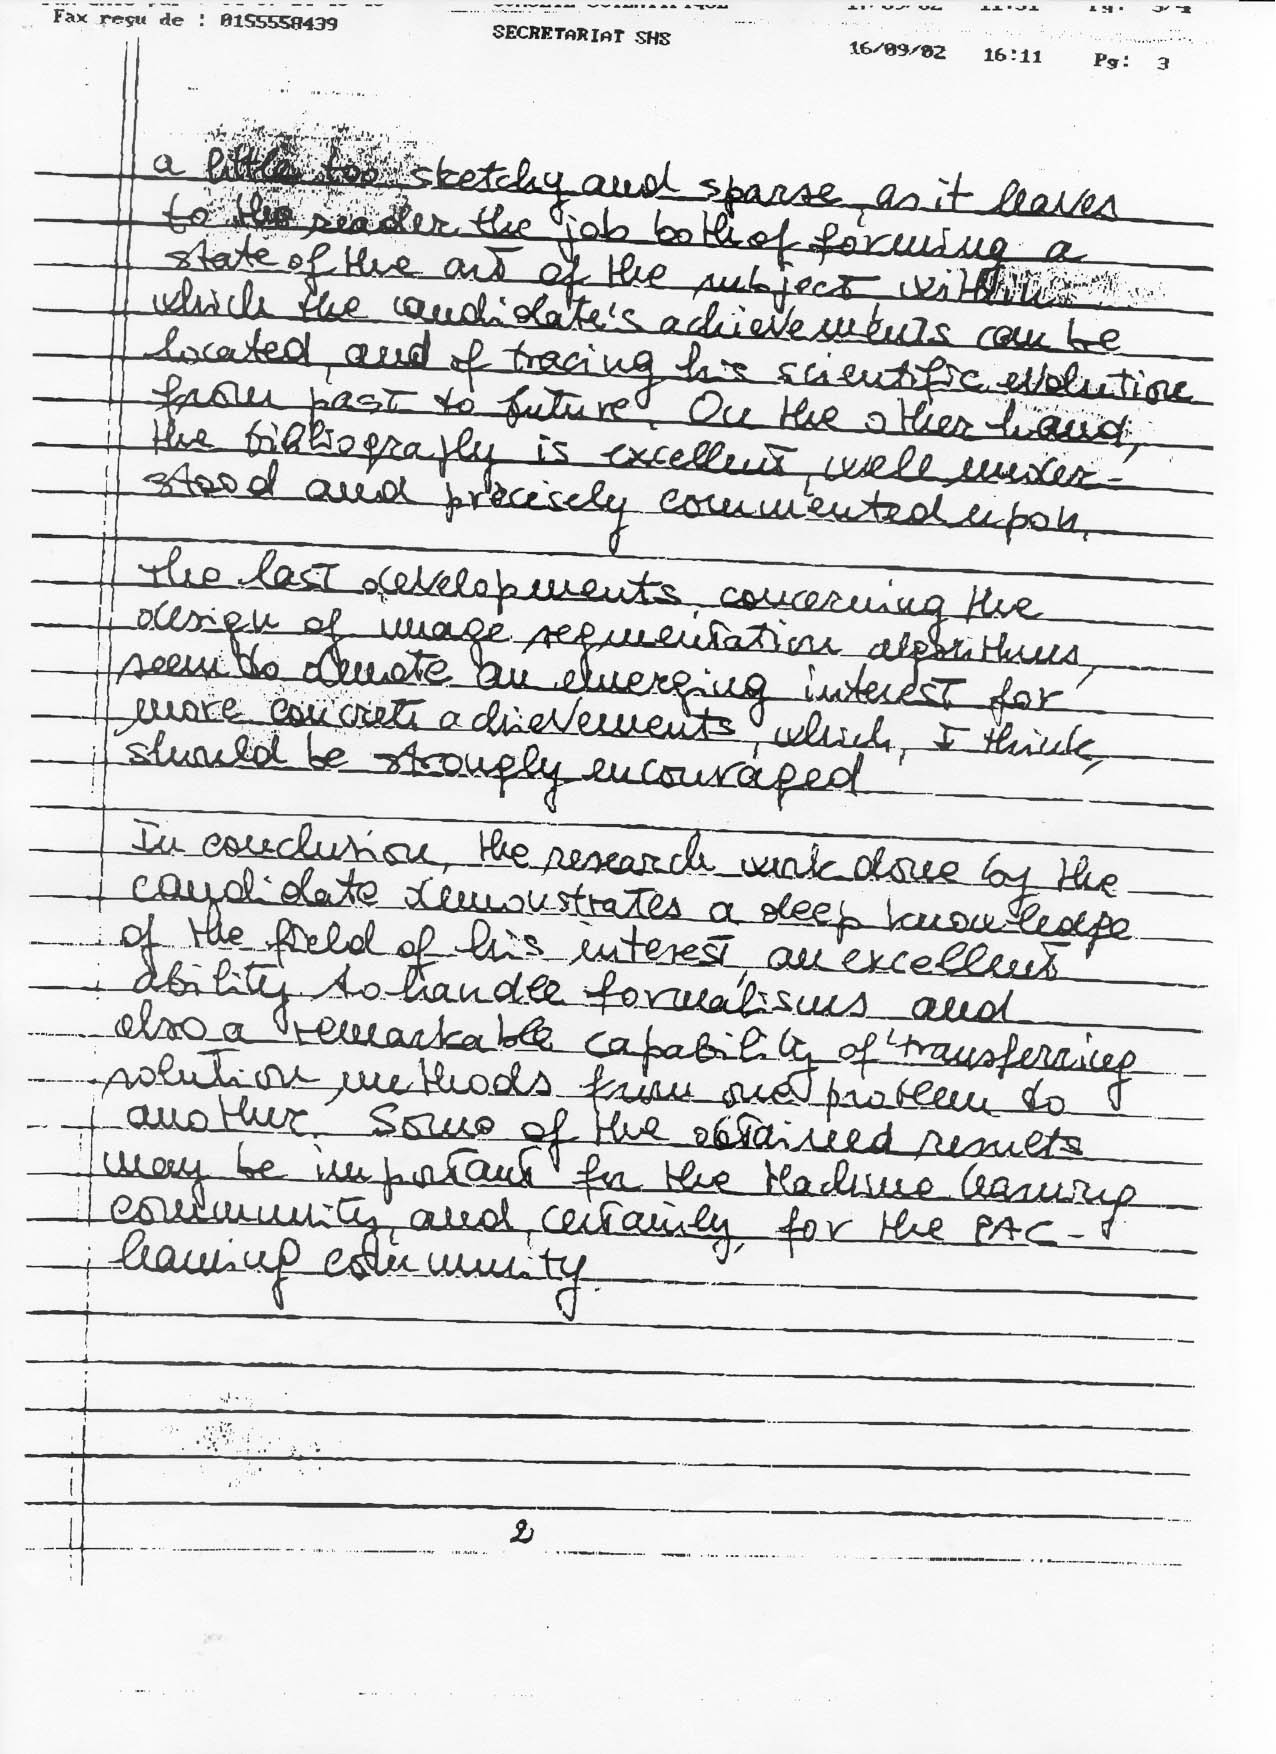 Fax reçu de : 0155558439
SECRETARIAT SHS
16/09/02 16:11 Pg: 3
a little too sketchy and sparse, as it leaves
to the reader the job both of forming a
state of the art of the subject within
which the candidate's achievements can be
located, and of tracing his scientific evolution
from past to future. On the other hand,
the bibliography is excellent, well under-
stood and precisely commented upon.
The last developments, concerning the
design of image segmentation algorithms,
seem to denote an emerging interest for
more concrete achievements, which, I think,
should be strongly encouraged
In conclusion, the research work done by the
candidate demonstrates a deep knowledge
of the field of his interest, an excellent
ability to handle formalisms and
also a remarkable capability of transferring
solution methods from one problem to
another. Some of the obtained results
may be important for the Machine Learning
community, and, certainly, for the PAC-
learning community.
2